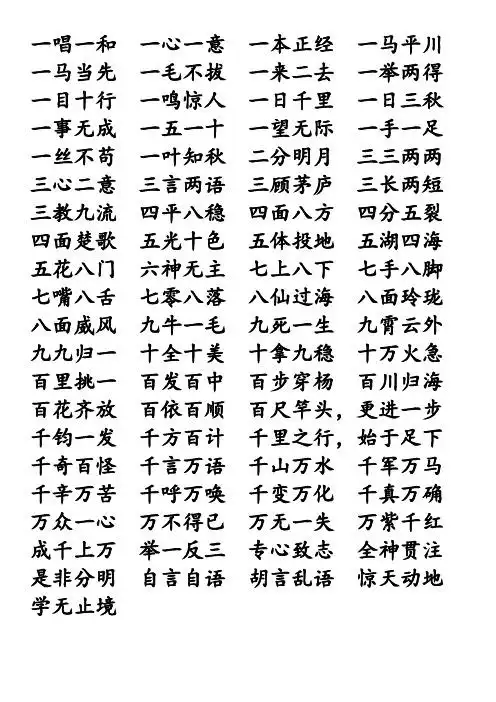 一唱一和 一心一意 一本正经 一马平川
一马当先 一毛不拔 一来二去 一举两得
一目十行 一鸣惊人 一日千里 一日三秋
一事无成 一五一十 一望无际 一手一足
一丝不苟 一叶知秋 二分明月 三三两两
三心二意 三言两语 三顾茅庐 三长两短
三教九流 四平八稳 四面八方 四分五裂
四面楚歌 五光十色 五体投地 五湖四海
五花八门 六神无主 七上八下 七手八脚
七嘴八舌 七零八落 八仙过海 八面玲珑
八面威风 九牛一毛 九死一生 九霄云外
九九归一 十全十美 十拿九稳 十万火急
百里挑一 百发百中 百步穿杨 百川归海
百花齐放 百依百顺 百尺竿头，更进一步
千钧一发 千方百计 千里之行，始于足下
千奇百怪 千言万语 千山万水 千军万马
千辛万苦 千呼万唤 千变万化 千真万确
万众一心 万不得已 万无一失 万紫千红
成千上万 举一反三 专心致志 全神贯注
是非分明 自言自语 胡言乱语 惊天动地
学无止境